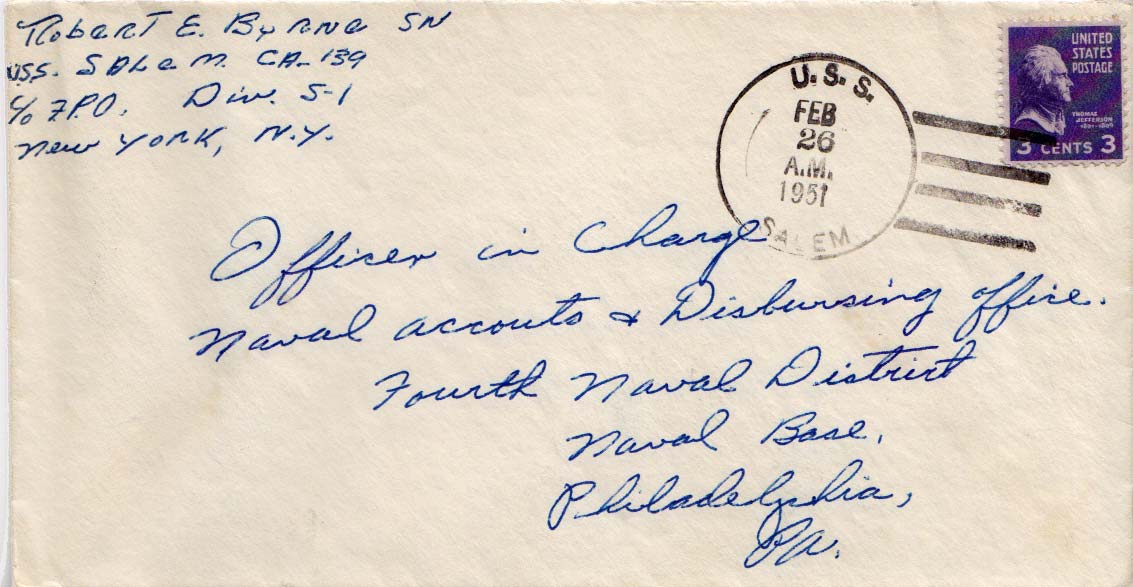 Robert E. Byrne SN
USS. Salem. CA-139
c/o F.P.O. Div. S-1
New York, N.Y.
U.S.S.
FEB
26
A.M.
1951
SALEM
UNITED
STATES
POSTAGE
THOMAS
JEFFERSON
1801-1809
3 CENTS 3
Officer in Charge
Naval accouts & Disbursing office.
Fourth Naval District
Naval Base,
Philadelphia,
Pa.